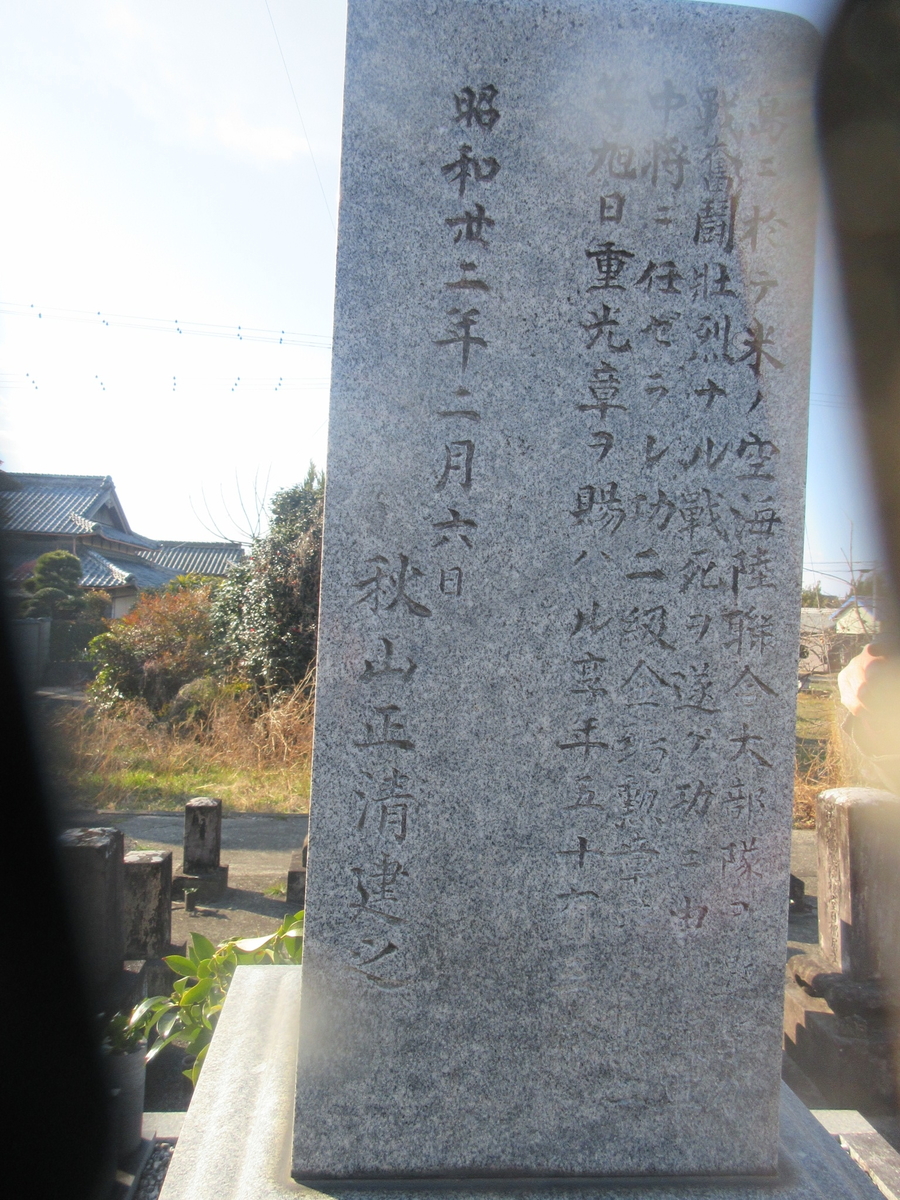 島ニ於テ米ノ空海陸聯合大部隊ヲ
戰奮鬪壯烈ナル戰死ヲ遂ゲ功ニヨ
中將ニ任ゼラレ功二級金鵄勳章
等旭日重光章ヲ賜ハル享年五十六
昭和卅二年二月六日
秋山正清建之